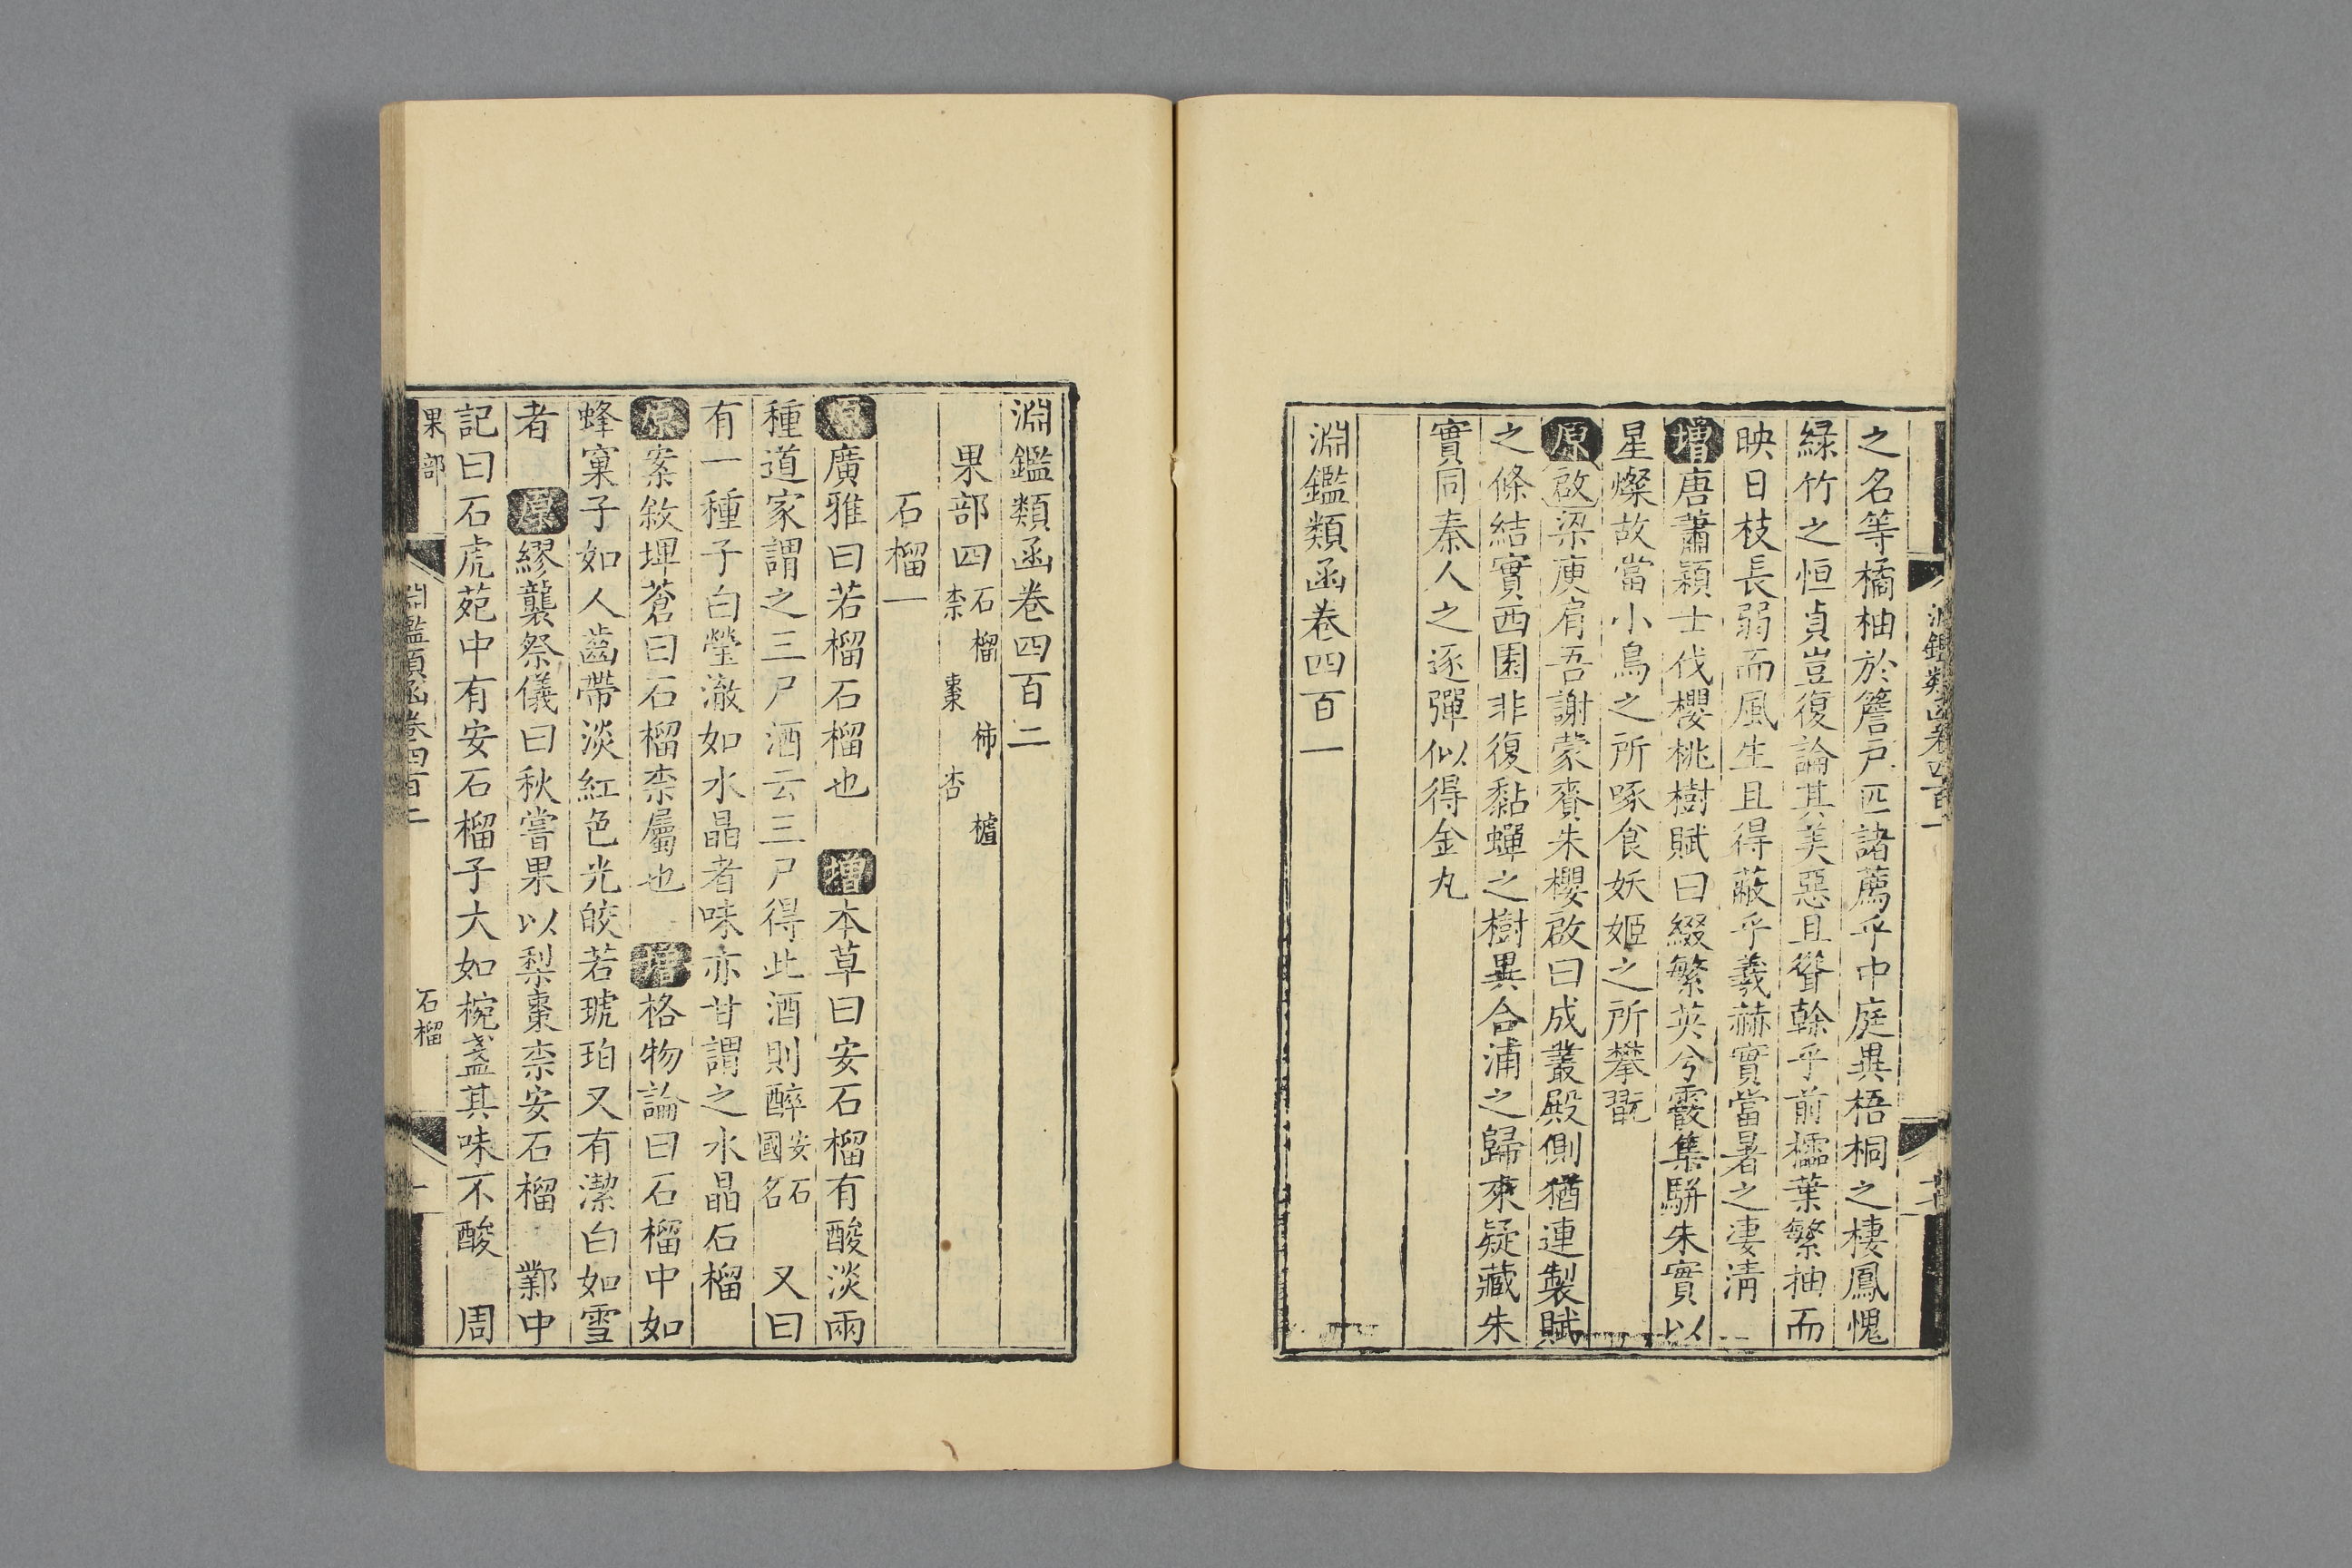 之名等橘柚於簷戶匹諸薦乎中庭異梧桐之棲鳳愧
綠竹之恒貞豈復論其美惡且聳榦乎前檽葉繁抽而
映日枝長弱而風生且得蔽乎羲赫實當暑之淒清
增唐蕭穎士伐櫻桃樹賦曰綴繁英兮霰集駢朱實以
星燦故當小鳥之所啄食妖姬之所攀翫
原啟梁庾肩吾謝蒙賚朱櫻啟曰成叢殿側猶連製賦
之條結實西園非復黏蟬之樹異合浦之歸來疑藏朱
實同秦人之逐彈似得金丸
淵鑑類函卷四百一
淵鑑類函卷四百二
果部四石榴 柿 樝柰 棗 杏
石榴一
原廣雅曰若榴石榴也 增本草曰安石榴有酸淡兩
種道家謂之三尸酒云三尸得此酒則醉安石國名 又曰
有一種子白瑩澈如水晶者味亦甘謂之水晶石榴
原案敘埤蒼曰石榴柰屬也 增格物論曰石榴中如
蜂窠子如人齒帶淡紅色光皎若琥珀又有潔白如雪
者 原繆襲祭儀曰秋嘗果以梨棗柰安石榴 鄴中
記曰石虎苑中有安石榴子大如椀盞其味不酸 周
果部
淵鑑類函卷四百二
石榴